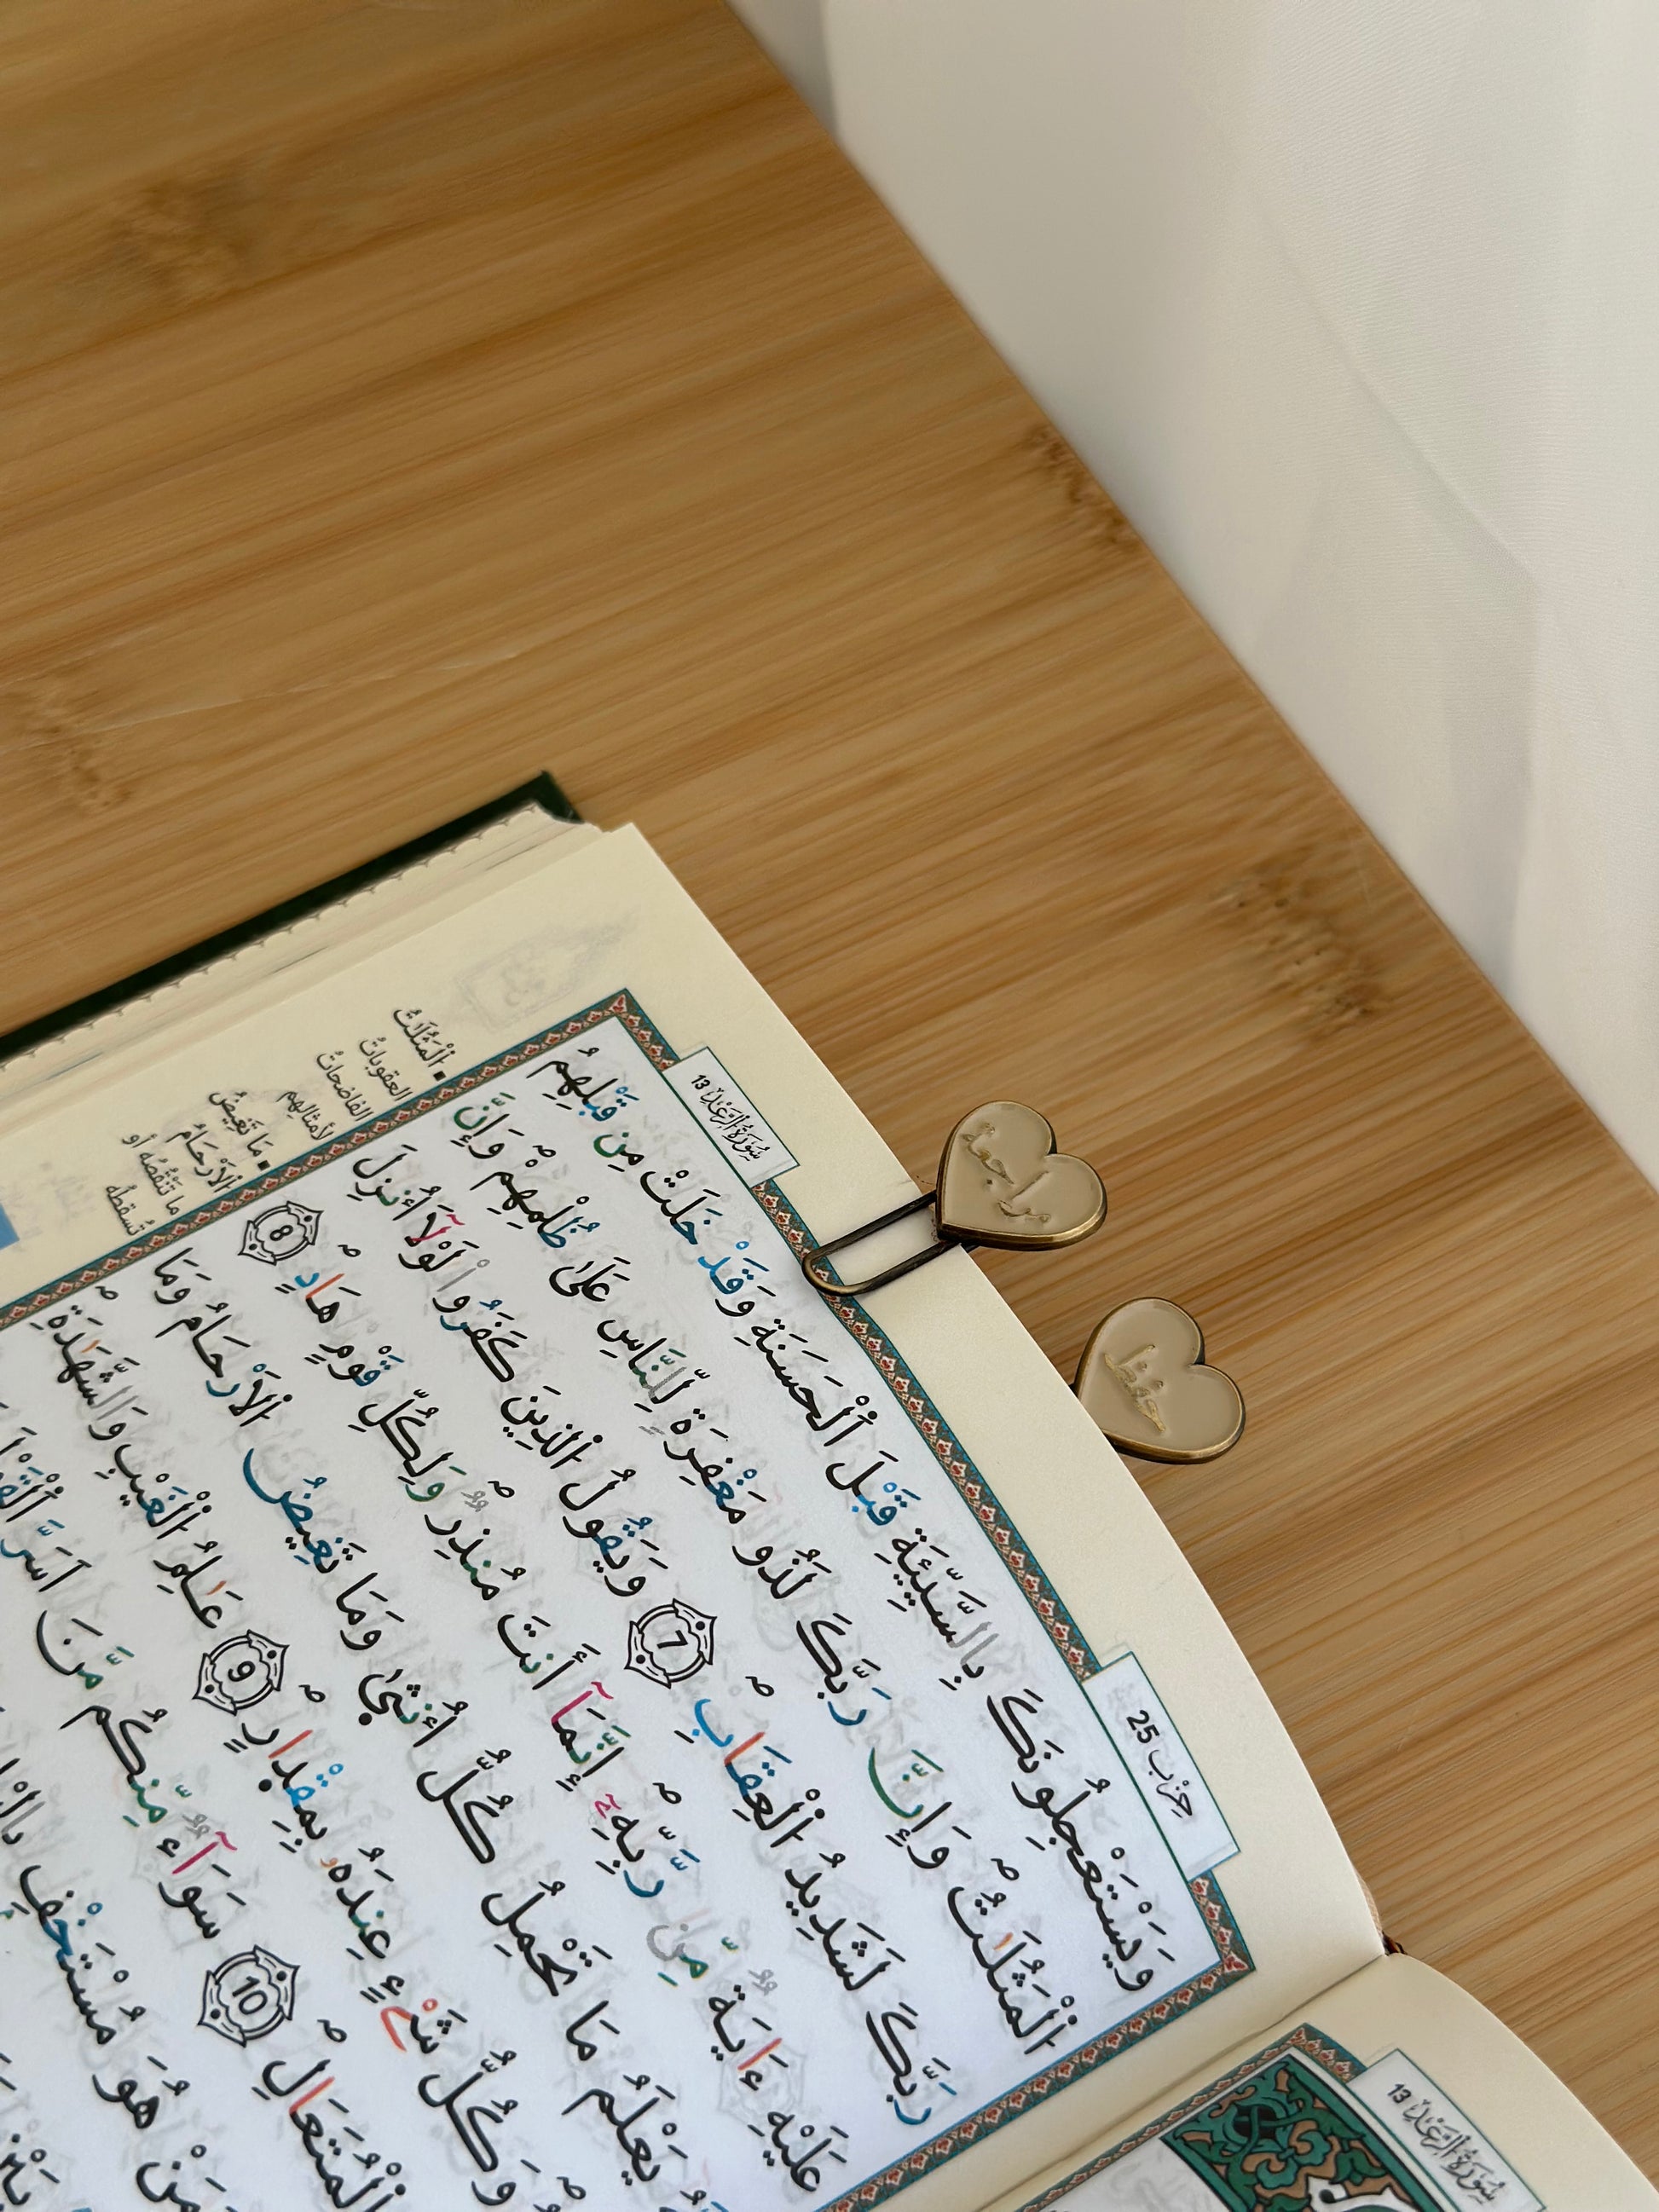 سُورَةُ الرَّعْدِ 13
حِزْب 25
وَيَسْتَعْجِلُونَكَ بِالسَّيِّئَةِ قَبْلَ اَ۬لْحَسَنَةِ وَقَدْ خَلَتْ مِن قَبْلِهِمُ
اُ۬لْمَثُلَٰتُ وَإِنَّ رَبَّكَ لَذُو مَغْفِرَةٍ لِّلنَّاسِ عَلَىٰ ظُلْمِهِمْ وَإِنَّ
رَبَّكَ لَشَدِيدُ اُ۬لْعِقَابِ 7 وَيَقُولُ اُ۬لذِينَ كَفَرُواْ لَوْلَآ أُنزِلَ
عَلَيْهِ ءَايَةٌ مِّن رَّبِّهِۦٓ إِنَّمَآ أَنتَ مُنذِرٌ وَلِكُلِّ قَوْمٍ هَادٍ 8
يَعْلَمُ مَا تَحْمِلُ كُلُّ أُنثَىٰ وَمَا تَغِيضُ اُ۬لْأَرْحَامُ وَمَا
وَكُلُّ شَيْءٍ عِندَهُۥ بِمِقْدَارٍ 9 عَٰلِمُ اُ۬لْغَيْبِ وَالشَّهَٰدَةِ
اُ۬لْمُتَعَالِ 10 سَوَآءٌ مِّنكُم مَّنَ اَسَرَّ
وَمَنْ هُوَ مُسْتَخْفٍ
▪ اُ۬لْمَثُلَٰتُ
العقوباتُ
الفاضحاتُ
لأمثالهم
▪ مَا تَغِيضُ
اُ۬لْأَرْحَامُ
ما تَنْقُصُه أو
تُسقطه
مراجعة
حفظ
سُورَةُ الرَّعْدِ 13